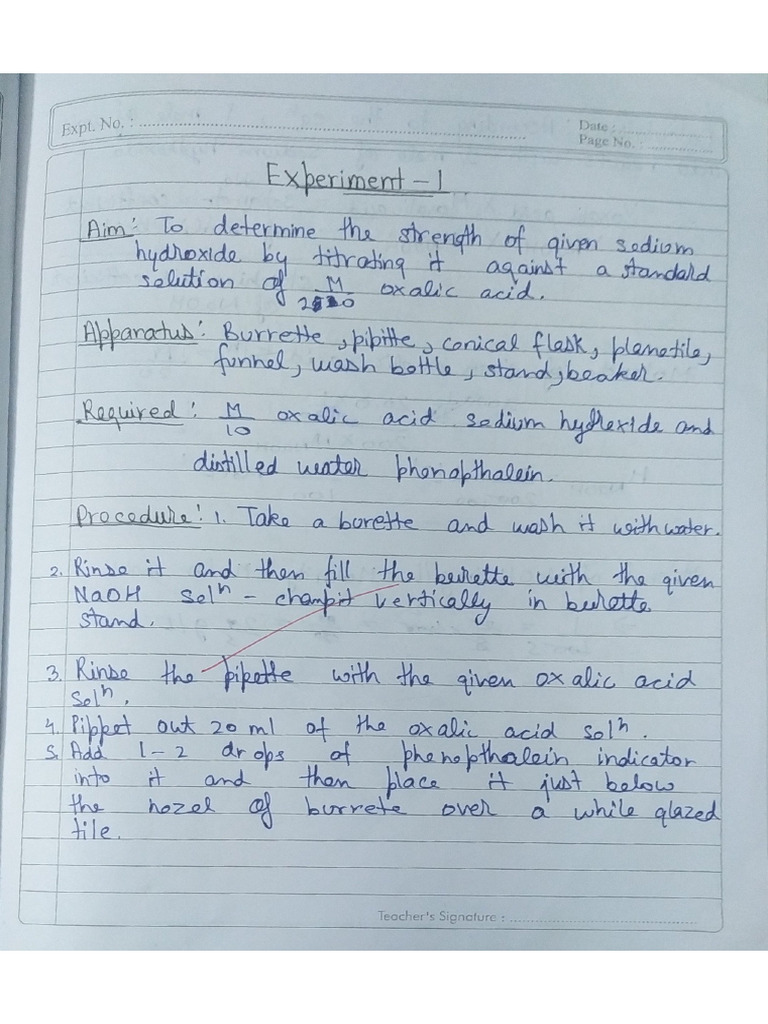 Expt. No. :
Date :
Page No. :
Experiment - 1
Aim: To determine the strength of given sodium
hydroxide by titrating it against a standard
solution of M/ oxalic acid.
Apparatus: Burrette, pipitte, conical flask, planetile,
funnel, wash bottle, stand, beaker.
Required: M/10 oxalic acid sodium hydroxide and
distilled water phenopthalein.
Procedure: 1. Take a burette and wash it with water.
2. Rinse it and then fill the burette with the given
NaOH solⁿ - vertically in burette
stand.
3. Rinse the pipette with the given oxalic acid
solⁿ.
4. Pippet out 20 ml of the oxalic acid solⁿ.
5. Add 1-2 drops of phenopthalein indicator
into it and then place it just below
the nozel of burrete over a while glazed
tile.
Teacher's Signature :